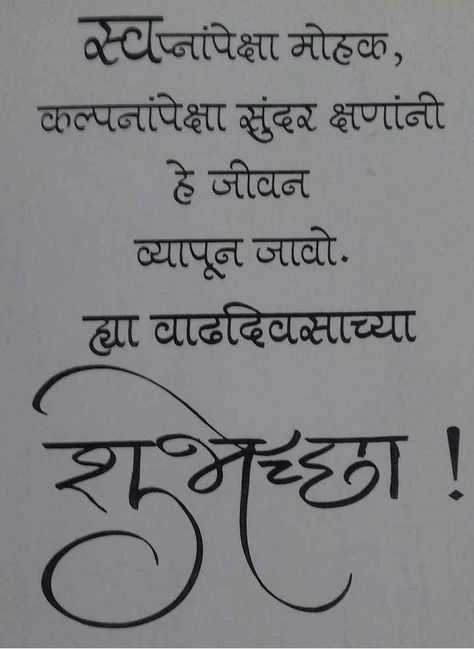 स्वप्नांपेक्षा मोहक,
कल्पनांपेक्षा सुंदर क्षणांनी
हे जीवन
व्यापून जावो.
ह्या वाढदिवसाच्या
शुभेच्छा !